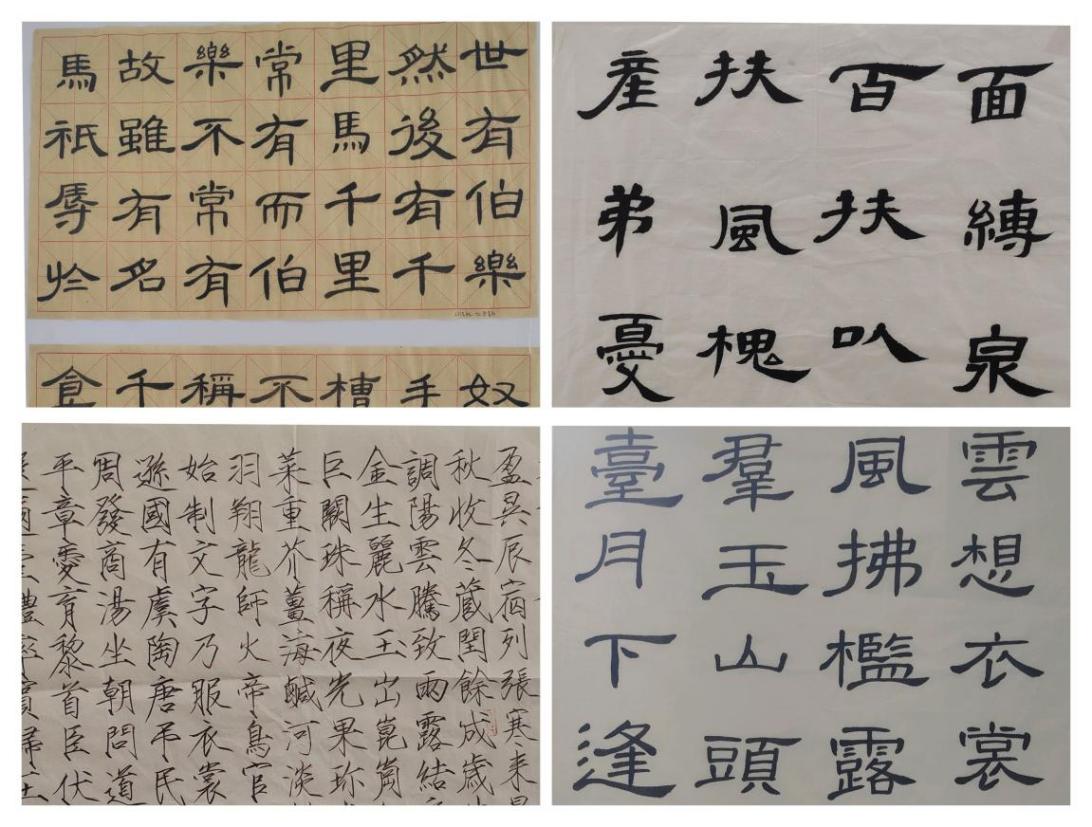 世有伯樂
然後有千
里馬千里
常有而伯
樂不常有
故雖有名
馬祇辱扵
奴
手
槽
不
稱
千
食
面縛泉
百扶叺
扶風槐
産弟憂
盈昃辰宿列張寒来
秋收冬蔵閏餘成歳
調陽雲騰致雨露結
金生麗水玉出崑崗
巨闕珠稱夜光果珎
菜重芥薑海鹹河淡
羽翔龍師火帝鳥官
始制文字乃服衣裳
遜國有虞陶唐弔民
周發商湯坐朝問道
平章愛育黎首臣伏
雲想衣裳
風拂檻露
羣玉山頭
臺月下逢